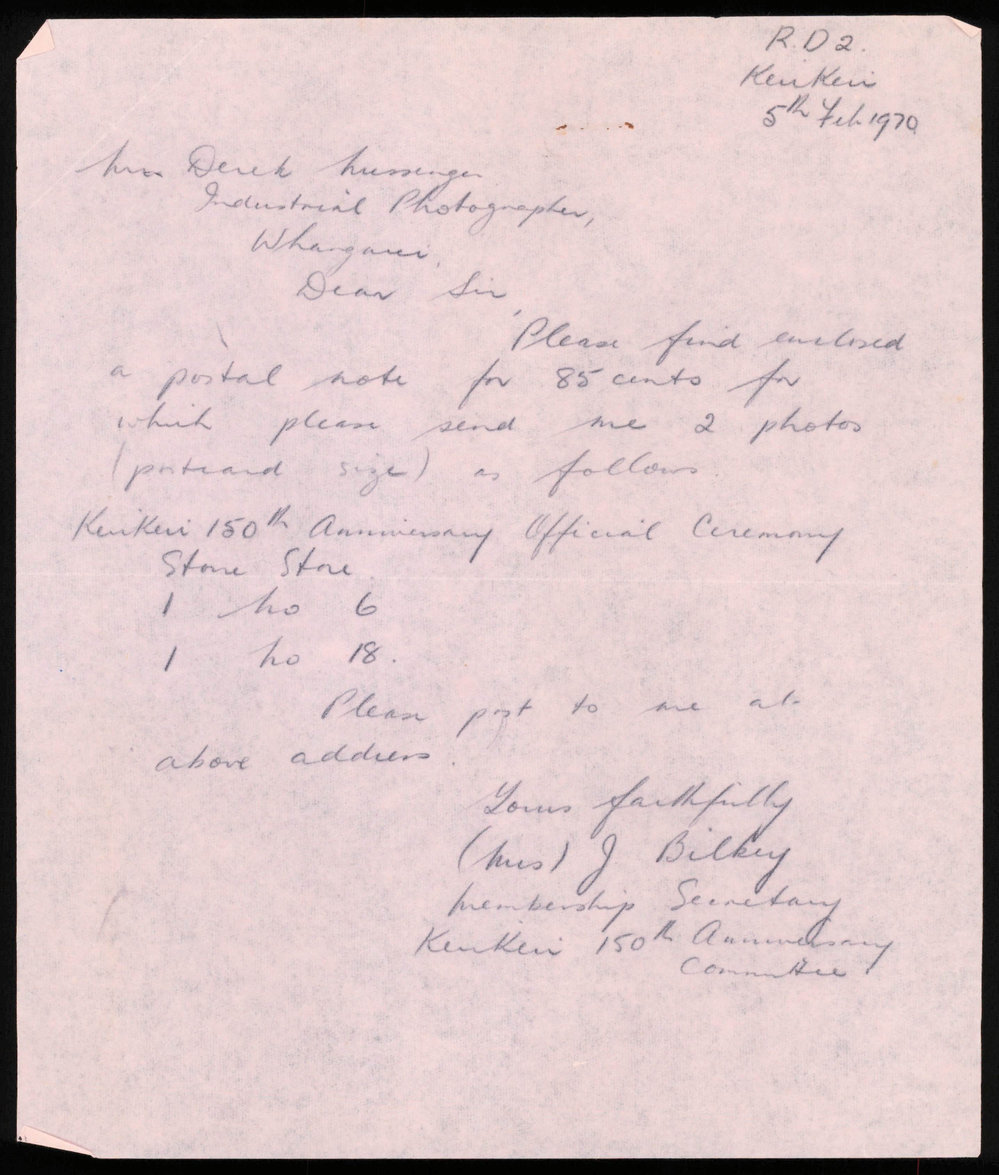 R.D 2.
KeriKeri
5th Feb 1970
Derek Messenger
Industrial Photographer,
Whangarei,
Dear Sir,
Please find enclosed
a postal note for 85 cents for
which please send me 2 photos
(postcard size) as follows.
KeriKeri 150th Anniversary Official Ceremony
Stone Store
1 No 6
1 No 18.
Please post to me at
above address.
Yours faithfully
(Mrs) J Bilkey
Membership Secretary
KeriKeri 150th Anniversary
Committee